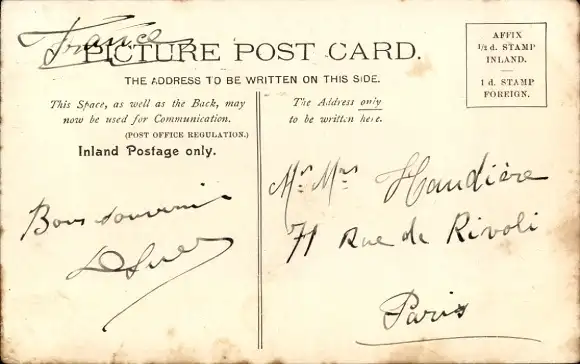 France
PICTURE POST CARD.
THE ADDRESS TO BE WRITTEN ON THIS SIDE.
AFFIX
½ d. STAMP
INLAND.
1 d. STAMP
FOREIGN.
This Space, as well as the Back, may
now be used for Communication.
(POST OFFICE REGULATION.)
Inland Postage only.
The Address only
to be written here.
Bons souvenirs
Mr. Mrs Haudière
71 Rue de Rivoli
Paris